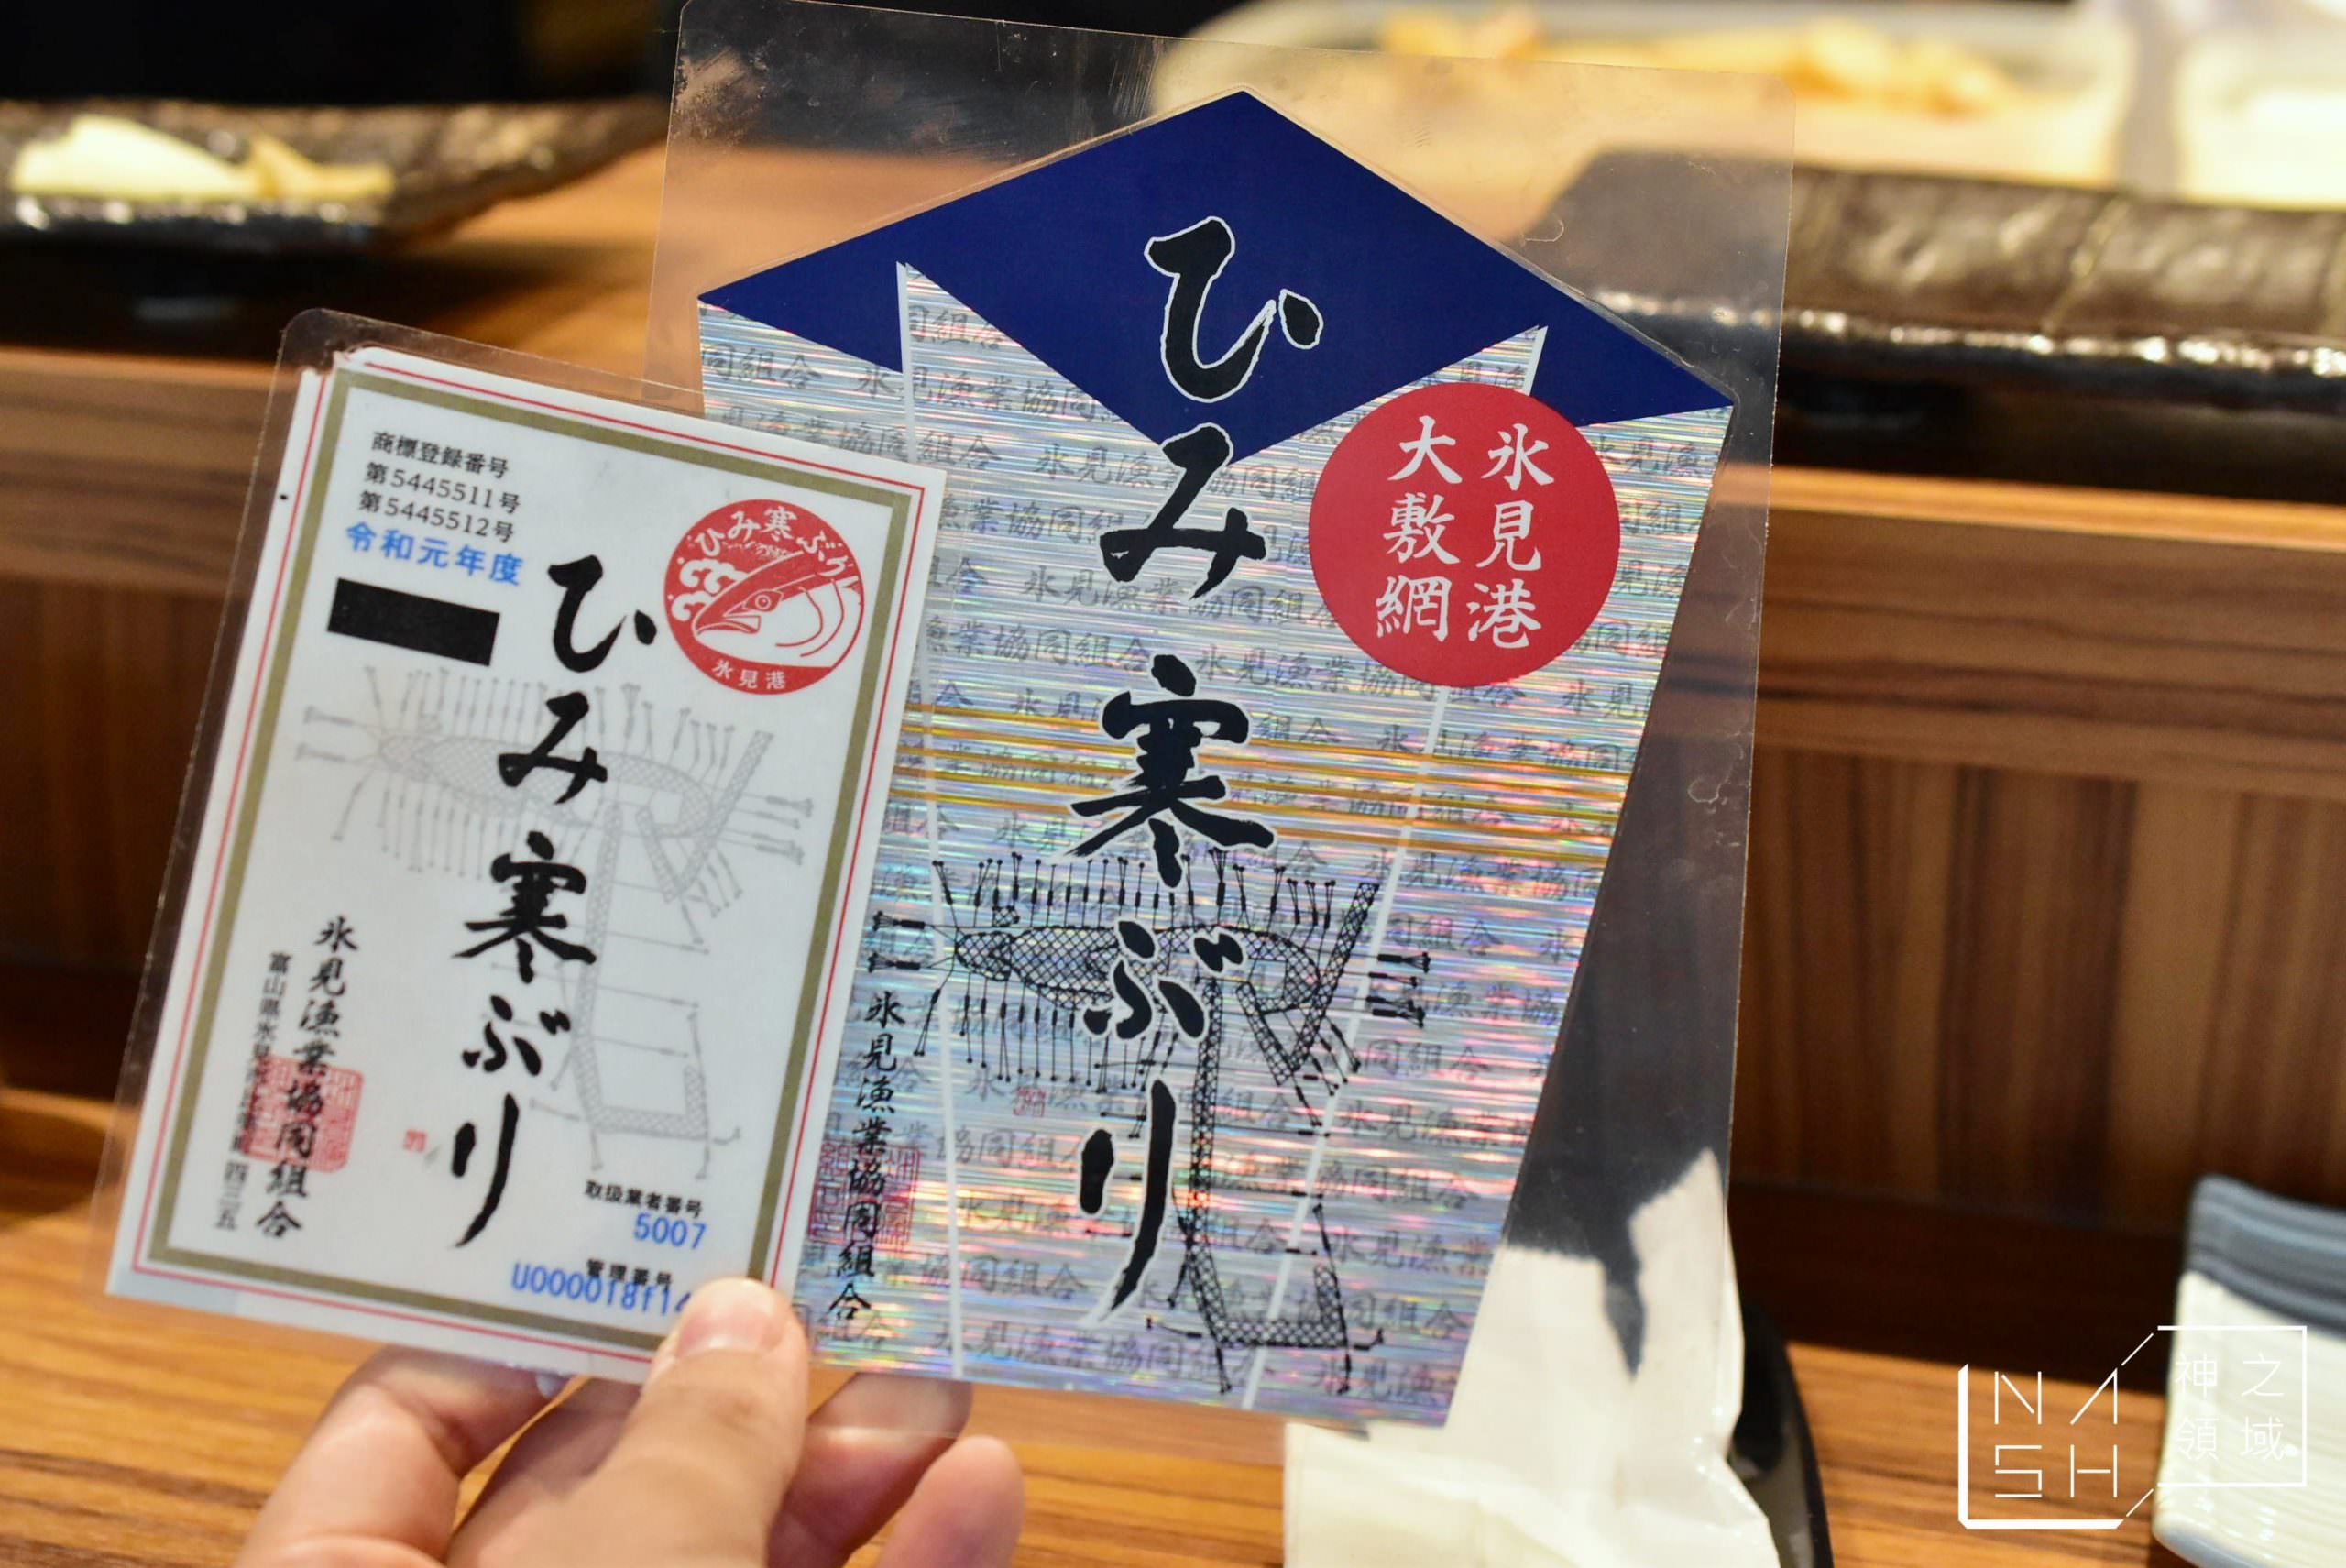 商標登録番号
第5445511号
第5445512号
令和元年度
ひみ寒ぶり
氷見港
ひみ寒ぶり
氷見漁業協同組合
取扱業者番号
5007
管理番号
ひみ寒ぶり
氷見港
大敷網
氷見漁業協同組合
NASH
神之
領域